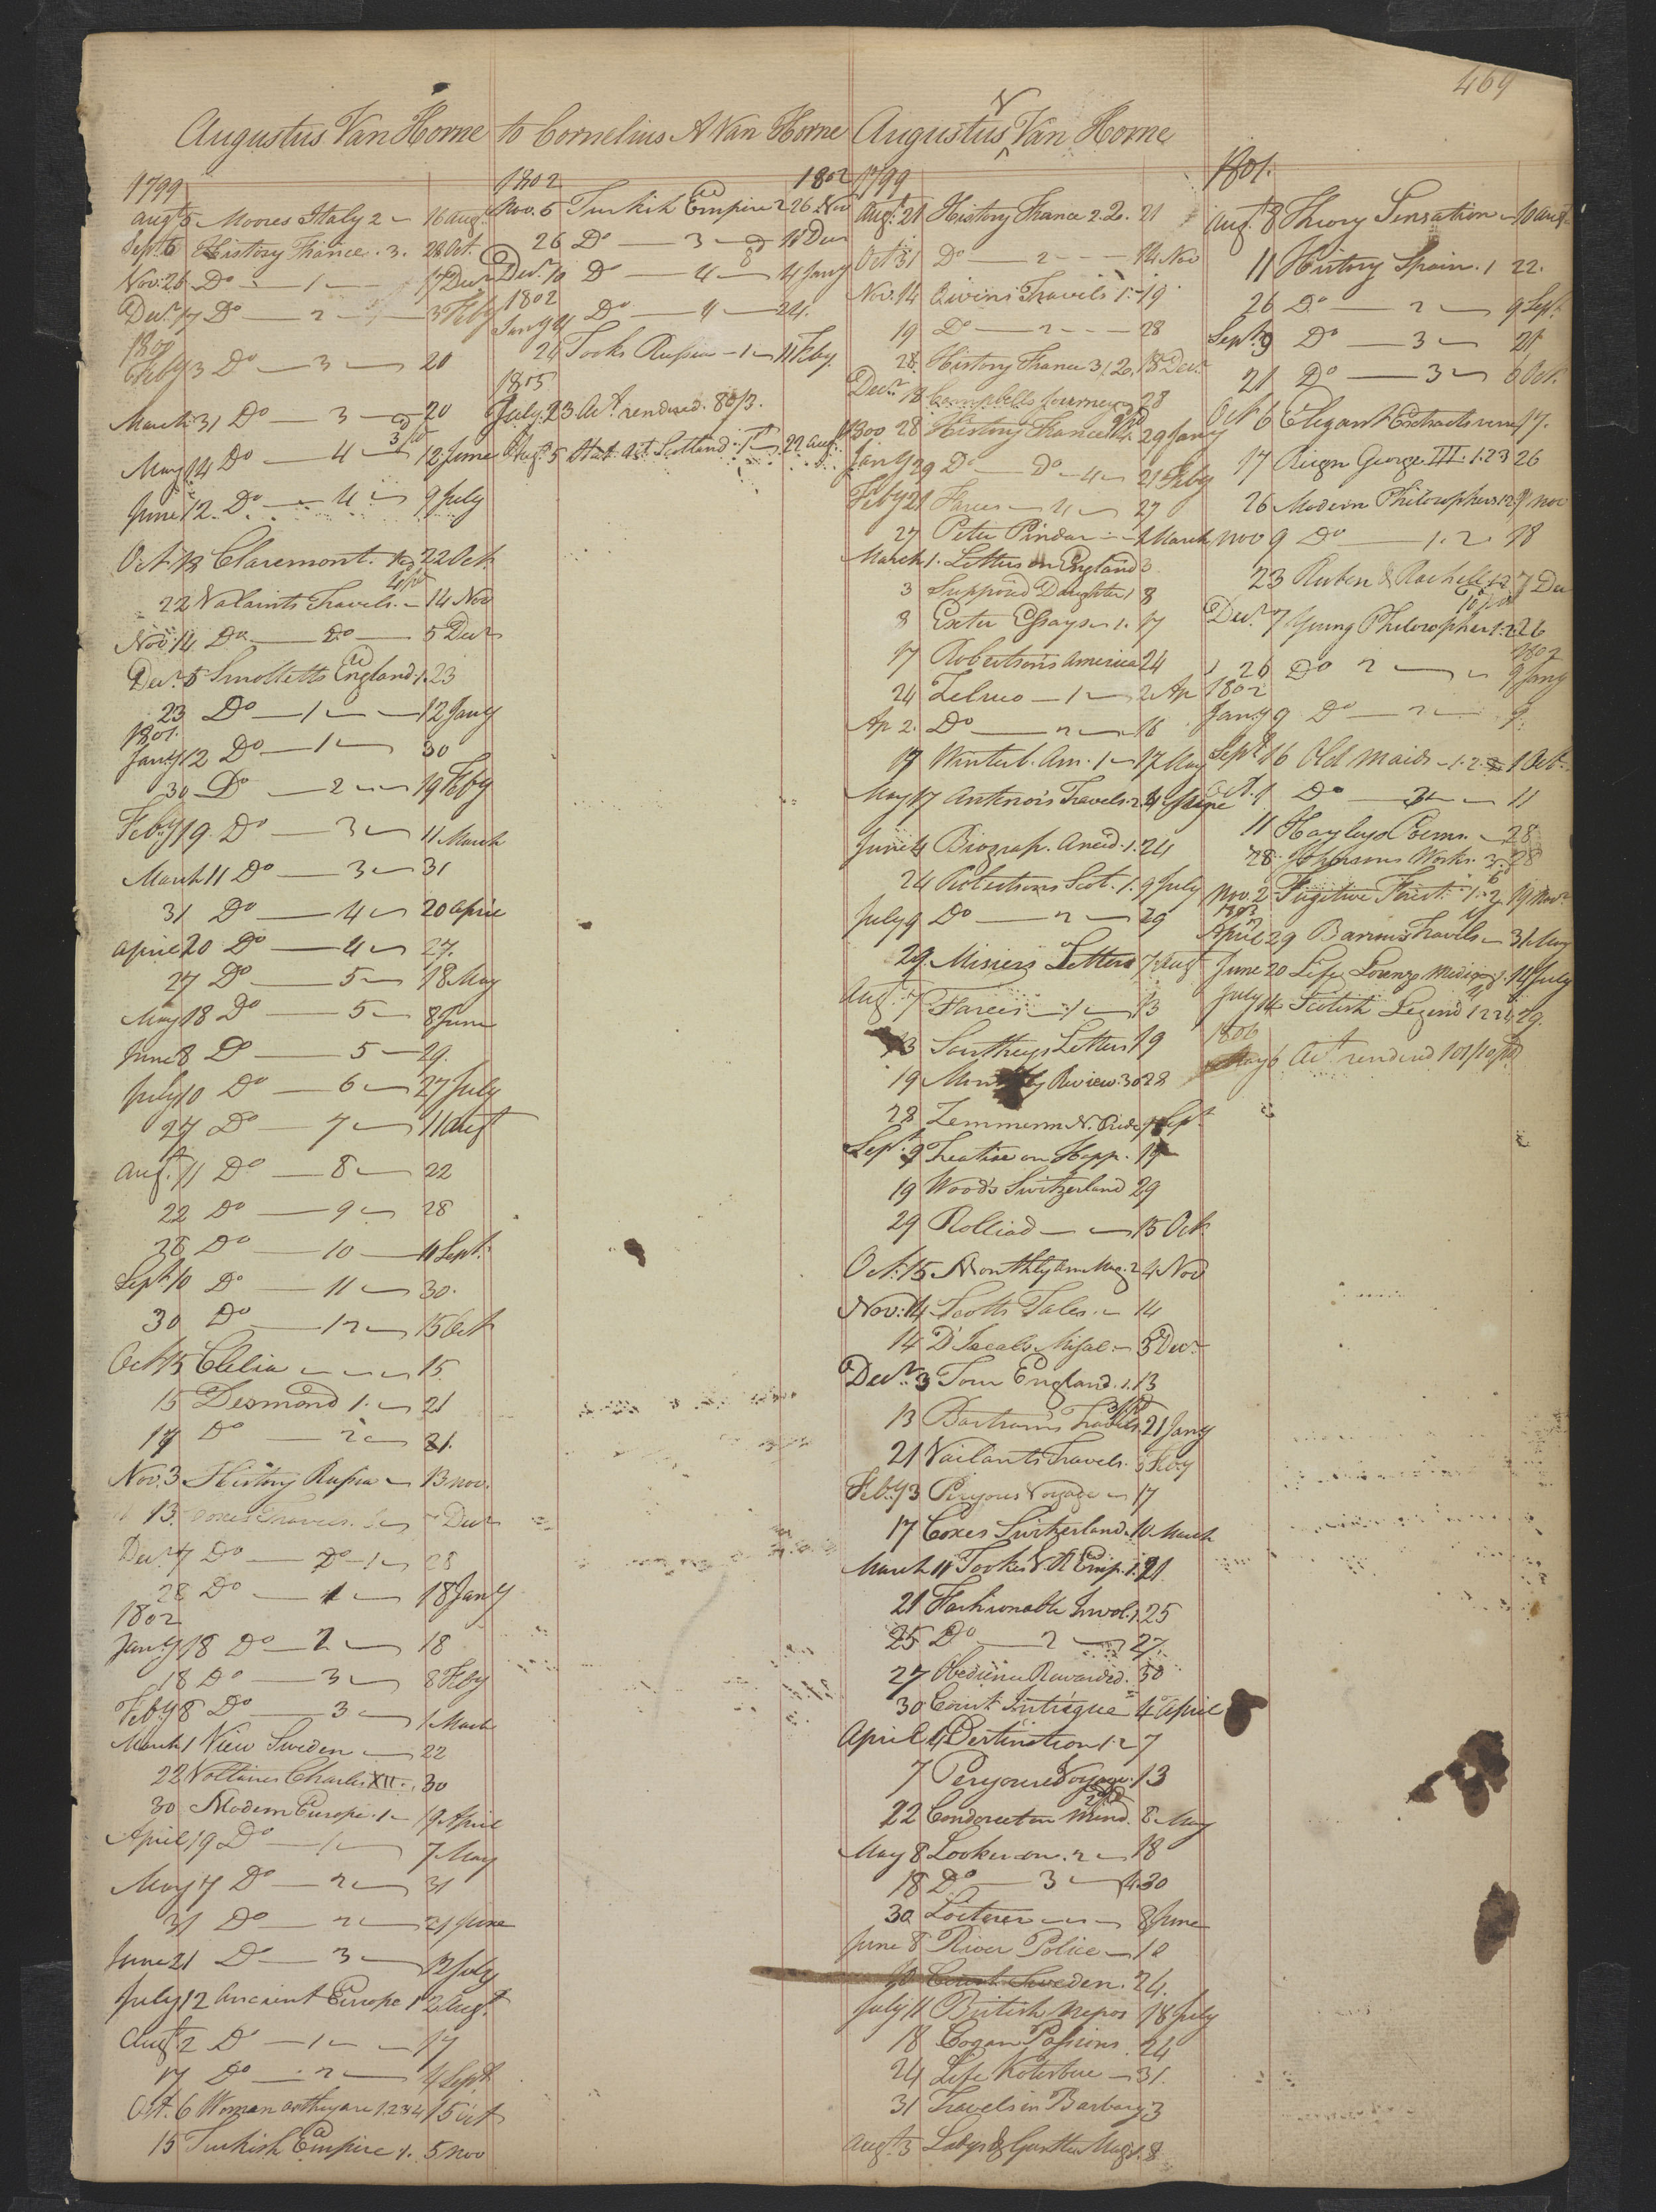 469
Augustus Van Horne to Cornelius A Van Horne
1799
Augt 5 Moores Italy 2 16 Augt
Sept 6 History France . 3. 28 Oct.
Nov. 26 Do — 1 — 17 Decr
Decr 17 Do — 2 — 3 Feby
1800
Feby 3 Do — 3 — 20
March 31 Do — 3 — 20
May 14 Do — 4 — 12 June
June 12 Do — 4 — 9 July
Oct. 18 Claremont. 22 Oct
22 Valaints Travels. — 14 Nov
Nov 14 Do — Do — 5 Decr
Decr 5 Smolletts England . 1. 23
23 Do — 1 — 12 Jany
1801.
Jany 12 Do — 1 — 30
30 Do — 2 — 19 Feby
Feby 19. Do — 3 — 11 March
March 11 Do — 3 — 31
31 Do — 4 — 20 April
April 20 Do — 4 — 27.
27 Do — 5 — 18 May
May 18 Do — 5 — 8 June
June 8 Do — 5 — 29.
July 10 Do — 6 — 27 July
27 Do — 7 — 11 Augt
Augt. 11 Do — 8 — 22
22 Do — 9 — 28
28 Do — 10 — Sept.
Sept 10 Do — 11 — 30.
30 Do — 12 — 15 Oct
Oct 15 Clelia — 15.
15 Desmond 1. — 21
17 Do — 2 — 21.
Nov. 3 History Russia — 13 nov.
13. Coxes Travels. 7 Decr
Decr 7 Do — Do — 1 — 28
28 Do — 1 — 18 Jany
1802
Jany 18 Do — 2 — 18
18 Do — 3 — 8 Feby
Feby 8 Do — 3 — 1 March
March 1 View Sweden — 22
22 Voltaires Charles XII . 30
30 Modern Europe . 1 — 19 April
April 19 Do — 1 — 7 May
May 7 Do — 2 — 31
31 Do — 2 — 21 June
June 21 Do — 3 — 12 July
July 12 Ancient Europe 1 2 Augt
Augt 2 Do — 1 — 17
17 Do — 2 — 4 Sept
Oct. 6 Woman as they are 1.2.3.4 15 Oct
15 Turkish Empire 1. 5 Nov
1802 1802
Nov. 5 Turkish Empire 2 26 Nov
26 Do — 3 — 10 Decr
Decr. 10 Do — 4 — 4 Jany
1802
Jany 4 Do — 4 — 24.
24 Tooks Russia — 1 — 11 Feby.
1805
July. 23 Act. rendered. 80/3.
Augt 5 Stat. Act. Scotland . 1 22 Augt
Augustus V Van Horne
1799
Augt. 21 History France 2. Do. 21
Oct 31 Do — 2 — 14 Nov
Nov. 14 Bivins Travels 1. — 19
19 Do — 2 — 28
28. History France 3. 1. Do. 18 Decr
Decr 18 Campbells Journey 28
1800 28 History France 4. 29 Jany
Jany 29 Do — Do — 4 — 21 Feby
Feby 21 Farces — 4 — 27
27 Peter Pindar — 1 March
March 1. Letters on England 3
3 Supposed Daughter 1 8
8 Exeter Essays — 1. 17
17 Robertsons America 24
24 Zeluco — 1 — 2 Ap
Ap 2. Do — 2 — 16
17 Winterb. Am. 1 — 17 May
May 17 Antenors Travels. 2
June 4 Biograp. Anecd. 1. 24
24 Robertsons Scot. 1. 9 July
July 9 Do — 2 — 29
29. Misiers Letters 7 Augt
Aug. 7 Farces — 1 — 13
13 Southeys Letters 19
19 Monthly Review. 30 28
28 Zemmerm N. Pride 9 Sept
Sept. 9 Treatise on Happ. 19
19 Woods Switzerland 29
29 Rolliad — 15 Oct
Oct. 15 Monthly Am Mag. 2 4 Nov
Nov. 14 Scotts Tales. — 14
14 D'Isealis Misal. — 3 Decr
Decr. 3 Tour England. 1. 13
13 Bartrams Travels. 21 Jany
21 Vailants Travels. 3 Feby
Feby 3 Peyrous Voyage — 17
17 Coxes Switzerland. 10 March
March 11 Tookes V. R Emp. 1. 21
21 Fashionable Invol. 1. 25
25 Do — 2 — 27.
27 Obedience Rewarded. 30
30 Court Intrigue 4 April
April 4 Destination 1.2 7
7 Peyrouse Voyage. 13
22 Condorcet on Mind. 8 May
May 8 Looker on . 2 — 18
18 Do — 3 — 30
30 Loiterer — 8 June
June 8 River Police — 10
10 Court Sweden. 24.
July 11 British Nepos 18 July
18 Cogan Passions. 24
24 Life Kotzbue — 31.
31 Travels in Barbary 3
Augt. 3 Ladys & Gentln Mag. 1. 8
1801.
Augt. 8 Theory Sensation — 10 Augt
11 History Spain. 1 22.
26 Do — 2 — 9 Sept.
Sept. 9 Do — 3 — 21
21 Do — 3 — 6 Oct.
Oct 6 Elegant Extracts verse 17.
17 Reign George III. 1.2.3 26
26 Modern Philosophers 1.2. 9 Nov
Nov 9 Do — 1. 2. 18
23 Ruben & Rachell 1.2 7 Dec
Decr. 7 Young Philosopher 1.2. 26
1802
26 Do 2 — 9 Jany
1802
Jany 9 Do — 2 — 9.
Sept 16 Old Maids — 1. 2. 1 Oct.
Oct. 1 Do — 3 — 11
11 Hayleys Poems. — 28
28. Johnsons Works. 3. 28
Nov. 2 Fugitive Forest. 1. 2 19 Novr
1803
April 29 Barrows Travels — 31 May
June 20 Life Lorenzo Medicis 1. 14 July
July 14 Scotish Legend 1.2.3.4 29.
1806
May 6 Act rendered 101/10